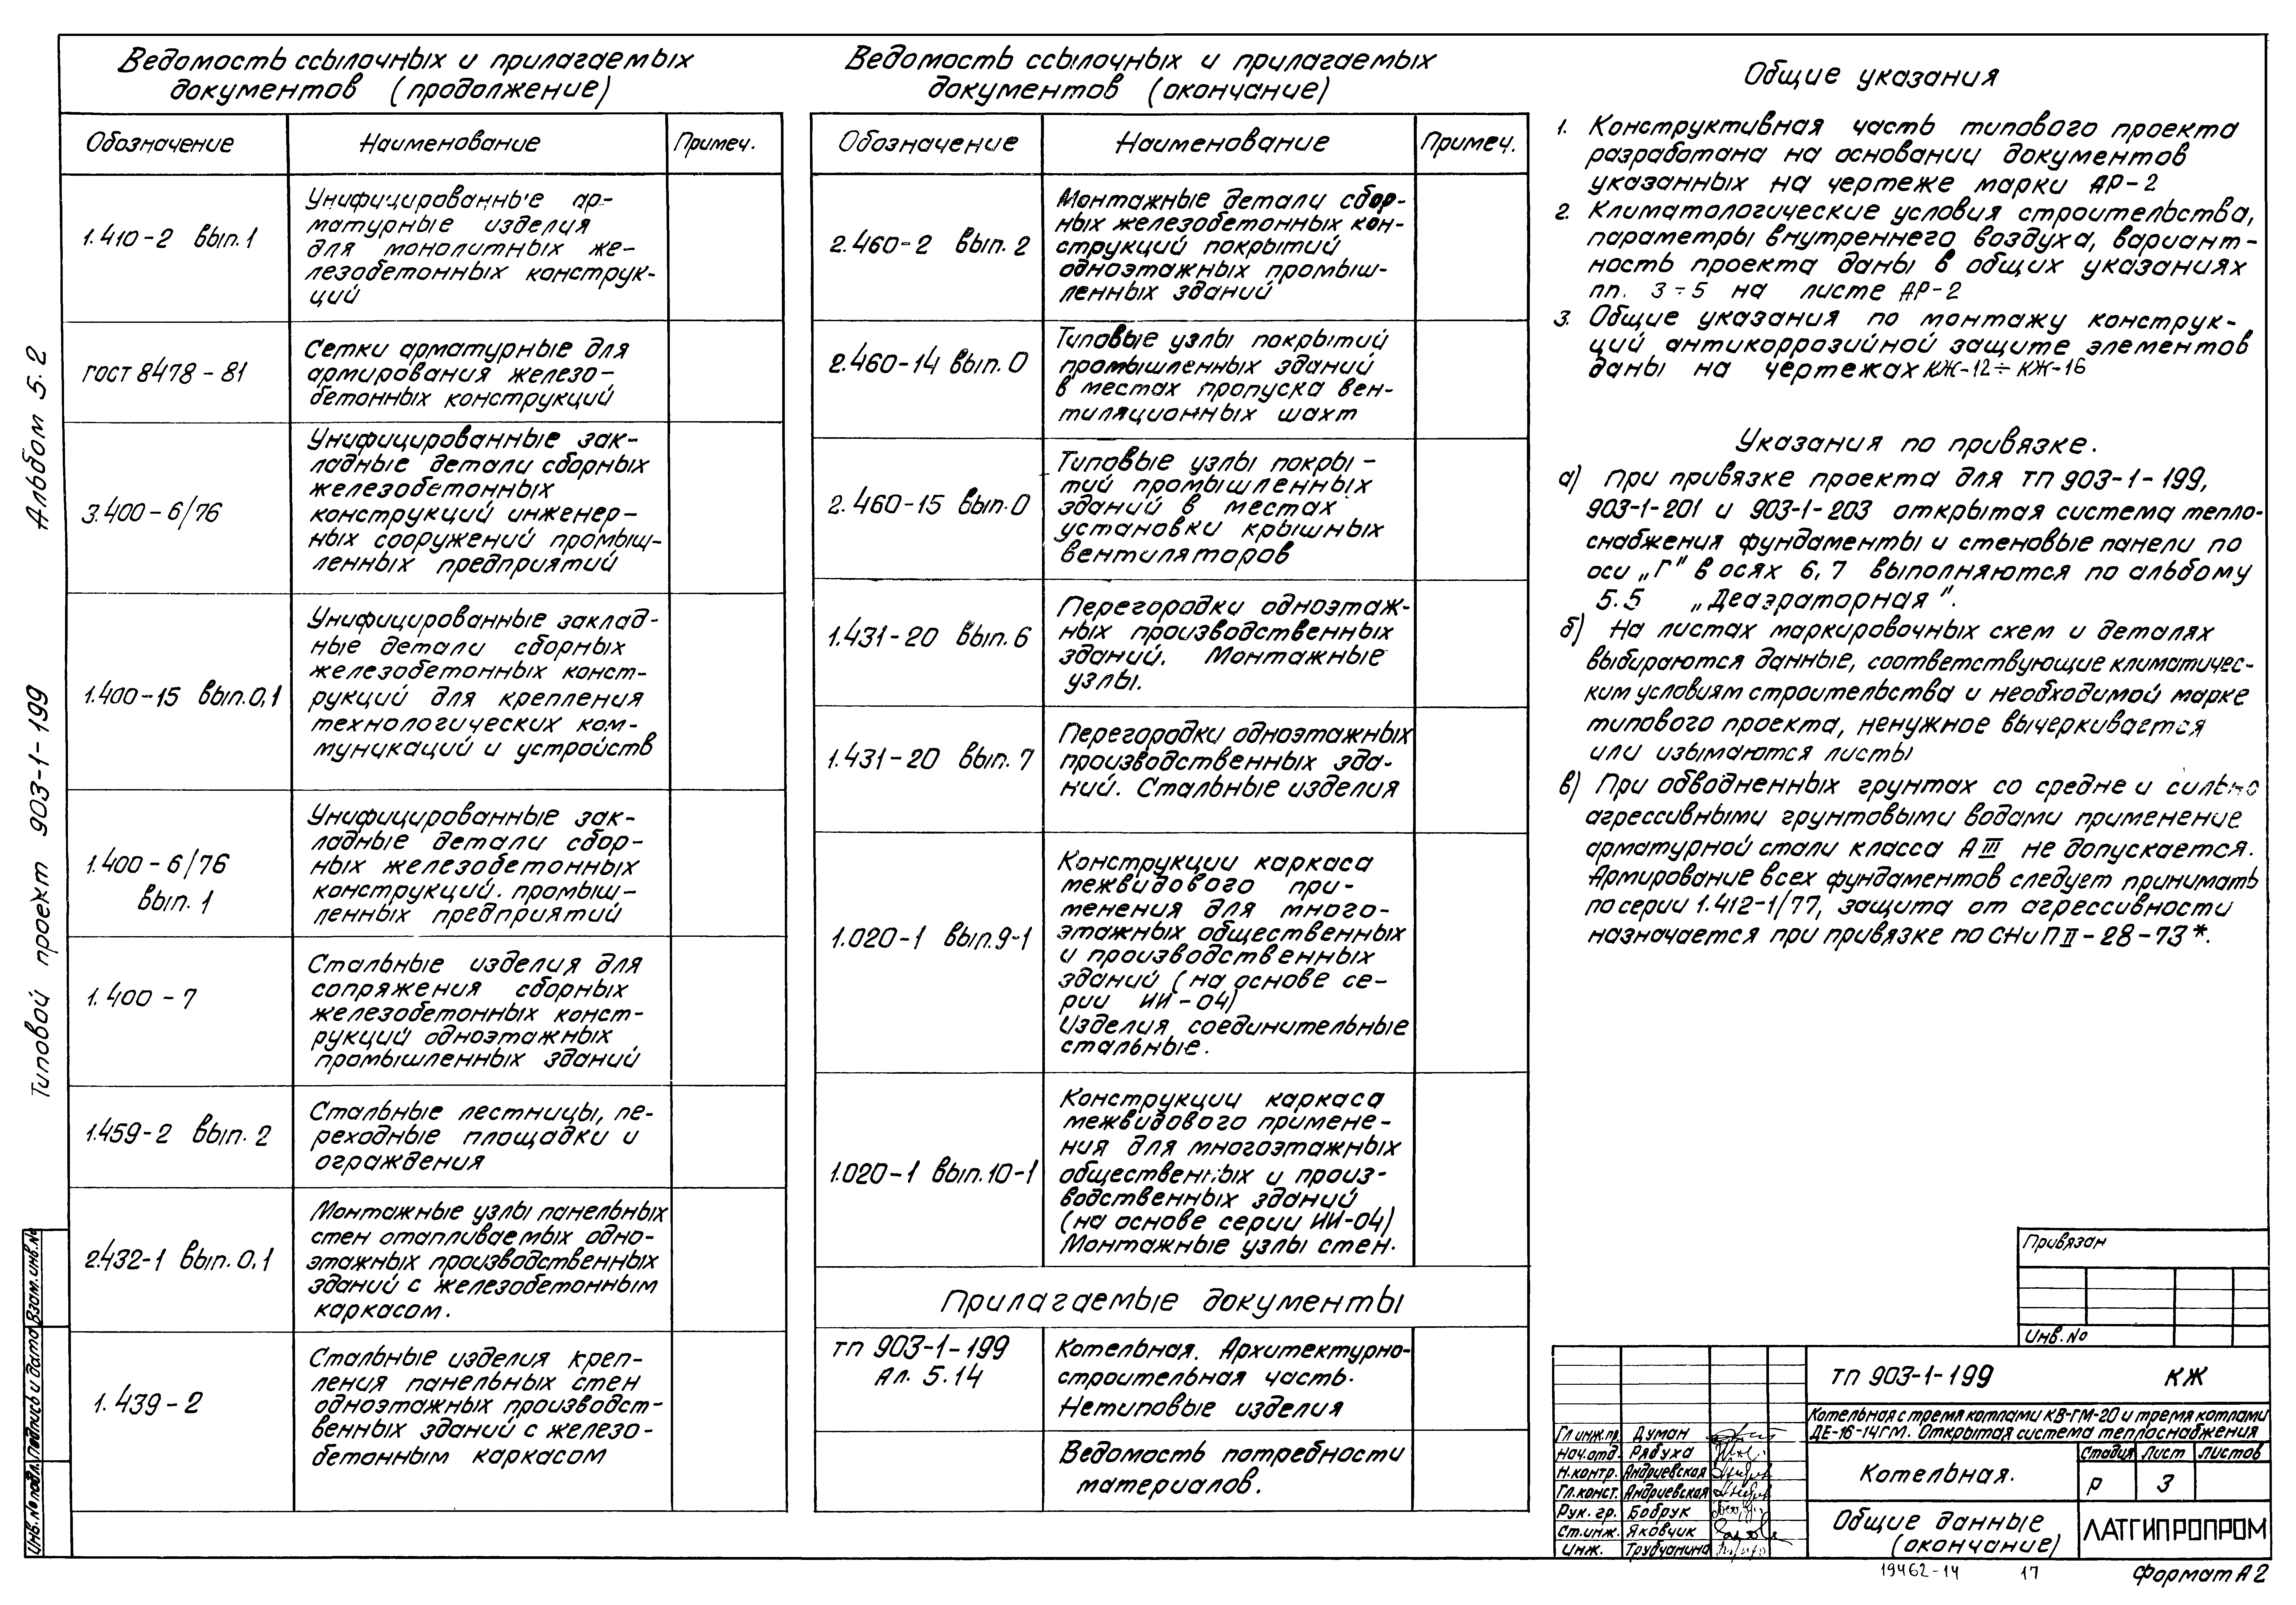 Альбом 5.2
Типовой проект 903-1-199
Ведомость ссылочных и прилагаемых
документов (продолжение)
Обозначение Наименование Примеч.
1.410-2 вып.1
Унифицированные ар-
матурные изделия
для монолитных же-
лезобетонных конструк-
ций
ГОСТ 8478-81
Сетки арматурные для
армирования железо-
бетонных конструкций
3.400-6/76
Унифицированные зак-
ладные детали сборных
железобетонных
конструкций инженер-
ных сооружений промыш-
ленных предприятий
1.400-15 вып.0,1
Унифицированные заклад-
ные детали сборных
железобетонных конст-
рукций для крепления
технологических ком-
муникаций и устройств
1.400-6/76
вып.1
Унифицированные зак-
ладные детали сбор-
ных железобетонных
конструкций. промыш-
ленных предприятий
1.400-7
Стальные изделия для
сопряжения сборных
железобетонных конст-
рукций одноэтажных
промышленных зданий
1.459-2 вып.2
Стальные лестницы, пе-
реходные площадки и
ограждения
2.432-1 вып.0,1
Монтажные узлы панельных
стен отапливаемых одно-
этажных производственных
зданий с железобетонным
каркасом.
1.439-2
Стальные изделия креп-
ления панельных стен
одноэтажных производст-
венных зданий с железо-
бетонным каркасом
Ведомость ссылочных и прилагаемых
документов (окончание)
Обозначение Наименование Примеч.
2.460-2 вып.2
Монтажные детали сбор-
ных железобетонных кон-
струкций покрытий
одноэтажных промыш-
ленных зданий
2.460-14 вып.0
Типовые узлы покрытий
промышленных зданий
в местах пропуска вен-
тиляционных шахт
2.460-15 вып.0
Типовые узлы покры-
тий промышленных
зданий в местах
установки крышных
вентиляторов
1.431-20 вып.6
Перегородки одноэтаж-
ных производственных
зданий. Монтажные
узлы.
1.431-20 вып.7
Перегородки одноэтажных
производственных зда-
ний. Стальные изделия
1.020-1 вып.9-1
Конструкции каркаса
межвидового при-
менения для много-
этажных общественных
и производственных
зданий (на основе се-
рии ИИ-04)
Изделия соединительные
стальные.
1.020-1 вып.10-1
Конструкции каркаса
межвидового примене-
ния для многоэтажных
общественных и произ-
водственных зданий
(на основе серии ИИ-04)
Монтажные узлы стен.
Прилагаемые документы
ТП 903-1-199
Ал. 5.14
Котельная. Архитектурно-
строительная часть.
Нетиповые изделия
Ведомость потребности
материалов.
Общие указания
1. Конструктивная часть типового проекта
разработана на основании документов
указанных на чертеже марки АР-2
2. Климатологические условия строительства,
параметры внутреннего воздуха, вариант-
ность проекта даны в общих указаниях
пп. 3÷5 на листе АР-2
3. Общие указания по монтажу конструк-
ций антикоррозийной защите элементов
даны на чертежах КЖ-12÷КЖ-16
Указания по привязке.
а) При привязке проекта для ТП 903-1-199,
903-1-201 и 903-1-203 открытая система тепло-
снабжения фундаменты и стеновые панели по
оси „Г" в осях 6,7 выполняются по альбому
5.5 „Деаэраторная".
б) На листах маркировочных схем и деталях
выбираются данные, соответствующие климатичес-
ким условиям строительства и необходимой марке
типового проекта, ненужное вычеркивается
или изымаются листы
в) При обводненных грунтах со средне и сильно
агрессивными грунтовыми водами применение
арматурной стали класса А III не допускается.
Армирование всех фундаментов следует принимать
по серии 1.412-1/77, защита от агрессивности
назначается при привязке по СНиП II-28-73*.
Привязан
Инв.№
ТП 903-1-199 КЖ
Котельная с тремя котлами КВ-ГМ-20 и тремя котлами
ДЕ-16-14ГМ. Открытая система теплоснабжения
Гл.инж.пр. Думан
Нач.отд. Рябуха
Н.контр. Андриевская
Гл.конст. Андриевская
Рук.гр. Бобрук
Ст.инж. Яковчик
Инж. Трубчанина
Котельная.
Стадия Лист Листов
Р 3
Общие данные
(окончание)
ЛАТГИПРОПРОМ
19462-14 17
Формат А2
Инв.№ подл. Подпись и дата Взам.инв.№